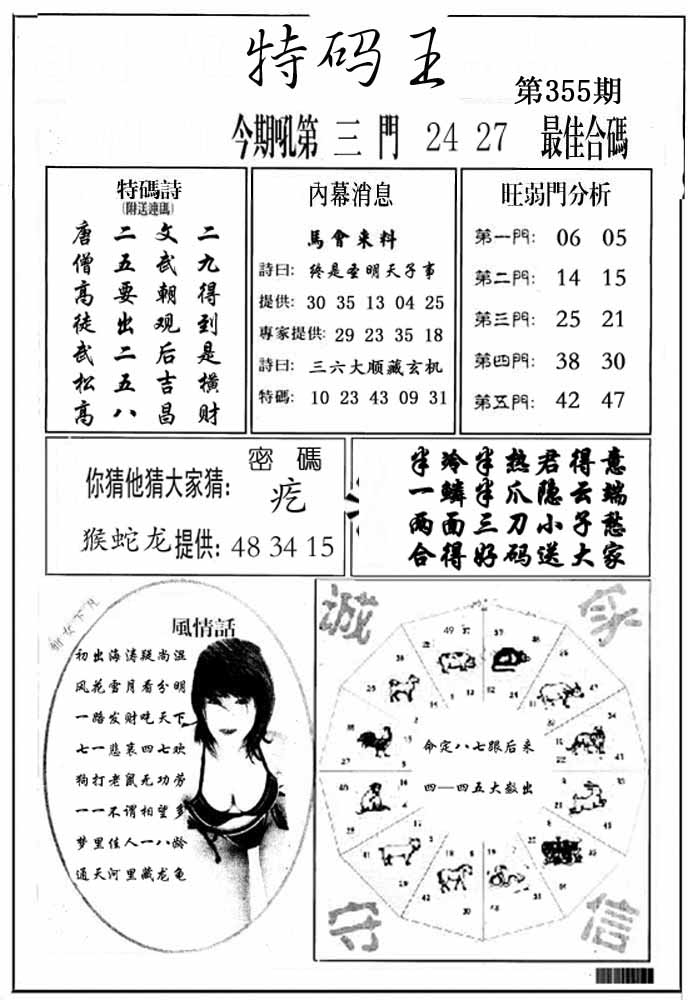 特码王
第355期
今期吼第 三 門 24 27 最佳合碼
特碼詩
(附送連碼)
唐 二 文 二
僧 五 武 九
高 要 朝 得
徒 出 观 到
武 二 后 是
松 五 吉 横
高 八 昌 财
內幕消息
馬會来料
詩曰: 终是圣明天子事
提供: 30 35 13 04 25
專家提供: 29 23 35 18
詩曰: 三六大顺藏玄机
特碼: 10 23 43 09 31
旺弱門分析
第一門: 06 05
第二門: 14 15
第三門: 25 21
第四門: 38 30
第五門: 42 47
密 碼
你猜他猜大家猜: 疙
猴蛇龙提供: 48 34 15
半冷半热君得意
一鳞半爪隐云端
两面三刀小子愁
合得好码送大家
風情話
初出海涛疑尚湿
风花雪月看分明
一路发财吃天下
七一悲哀四七欢
狗打老鼠无功劳
一一不谓相望多
梦里佳人一八龄
通天河里藏龙龟
诚
守
信
命定八七跟后来
四一四五大数出